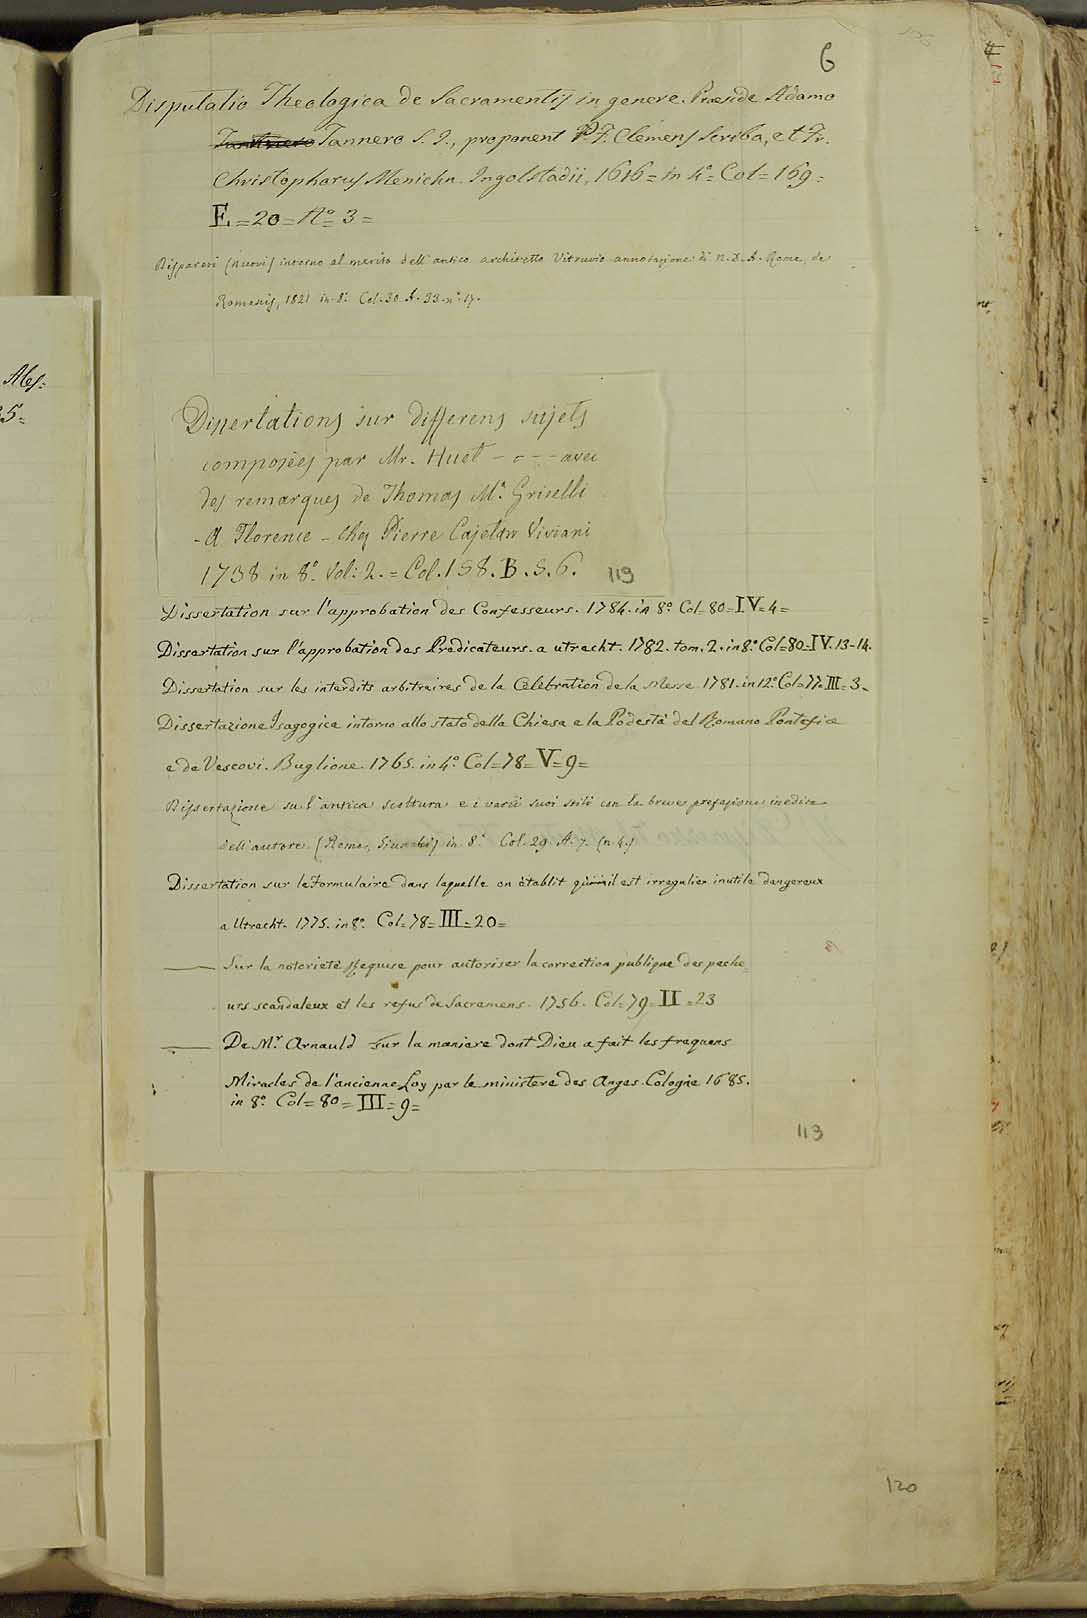 6
Disputatio Theologica de Sacramentis in genere. Præside Adamo
Tannero S. J., proponent P. F. Clemens Scriba, et Fr.
Christophorus Menichn. Ingolstadii, 1616 = in 4º = Col = 169 =
E = 20 = Nº 3 =
(Nuovi) intorno al merito dell'antico architetto Vitruvio annotazione di N. D. A. Roma, de
Romanis, 1821 in 8º Col. 30. A. 33. nº 17.
Abs:
5=
Dissertations sur differens sujets
composées par Mr. Huet - - - - avec
des remarques de Thomas Mª Griselli
- A Florence - chez Pierre Cajetan Viviani
1738 in 8º Vol: 2. = Col. 158. B. 5. 6.
119
Dissertation sur l'approbation des Confesseurs. 1784. in 8º Col = 80 = IV = 4 =
Dissertation sur l'approbation des Predicateurs. a utrecht. 1782. tom. 2. in 8º Col = 80 = IV. 13-14.
Dissertation sur les interdits arbitraires de la Celebration de la Messe 1781. in 12º Col = 77 = III = 3 =
Dissertazione Isagogica intorno allo stato della Chiesa e la Podestà del Romano Pontefice
e de Vescovi. Buglione. 1765. in 4º Col = 78 = V = 9 =
Dissertazione su l'antica scoltura e i varii suoi stili con la breve prefazione inedita
dell'autore. (Roma, ) in 8º Col. 29 A. 7. (n. 4.)
Dissertation sur le Formulaire dans laquelle on établit qu'il est irregulier inutile dangereux
a Utrecht. 1775. in 8º Col = 78 = III = 20 =
—— Sur la notorieté Requise pour autoriser la correction publique des peche=
urs scandaleux et les refus de Sacremens. 1756. Col = 79 = II = 23
—— De Mr Arnauld sur la maniere dont Dieu a fait les frequens
Miracles de l'ancienne Loy par le ministere des Anges. Cologne 1685.
in 8º Col = 80 = III = 9 =
113
120